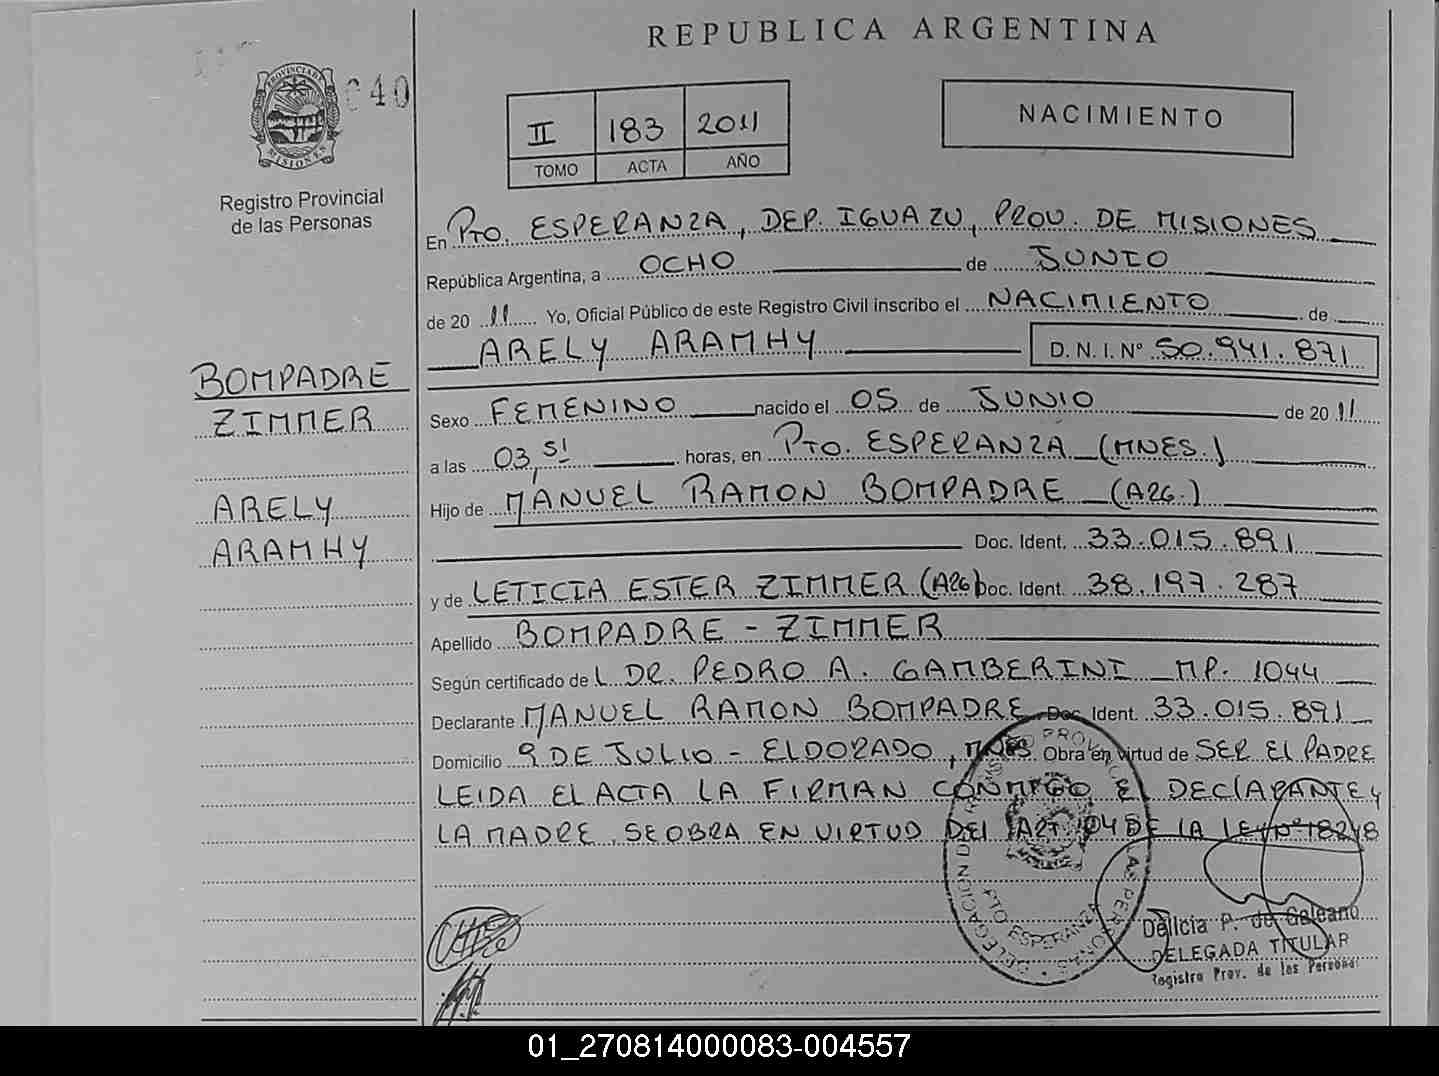 REPUBLICA ARGENTINA
PROVINCIA DE
MISIONES
040
Registro Provincial
de las Personas
II 183 2011
TOMO ACTA AÑO
NACIMIENTO
En Pto. ESPERANZA, DEP. IGUAZU, PROV. DE MISIONES
República Argentina, a OCHO de JUNIO
de 20 11 Yo, Oficial Público de este Registro Civil inscribo el NACIMIENTO de
ARELY ARAMHY D.N.I. Nº 50.941.871
BOMPADRE
ZIMMER
ARELY
ARAMHY
Sexo FEMENINO nacido el 05 de JUNIO de 20 11
a las 03,51 horas, en Pto. ESPERANZA (MNES.)
Hijo de MANUEL RAMON BOMPADRE (ARG.)
Doc. Ident. 33.015.891
y de LETICIA ESTER ZIMMER (ARG) Doc. Ident. 38.197.287
Apellido BOMPADRE - ZIMMER
Según certificado de L DR. PEDRO A. GAMBERINI MP. 1044
Declarante MANUEL RAMON BOMPADRE Doc. Ident. 33.015.891
Domicilio 9 DE JULIO - ELDORADO, MNES. Obra en virtud de SER EL PADRE
LEIDA EL ACTA LA FIRMAN CONMIGO EL DECLARANTE y
LA MADRE. SE OBRA EN VIRTUD DEL ART. 04 DE LA LEY Nº 18248
DELEGACION DEL REGISTRO PROVINCIAL DE LAS PERSONAS
PTO ESPERANZA
Delicia P. de Galeano
DELEGADA TITULAR
Registro Prov. de las Personas
01_270814000083-004557